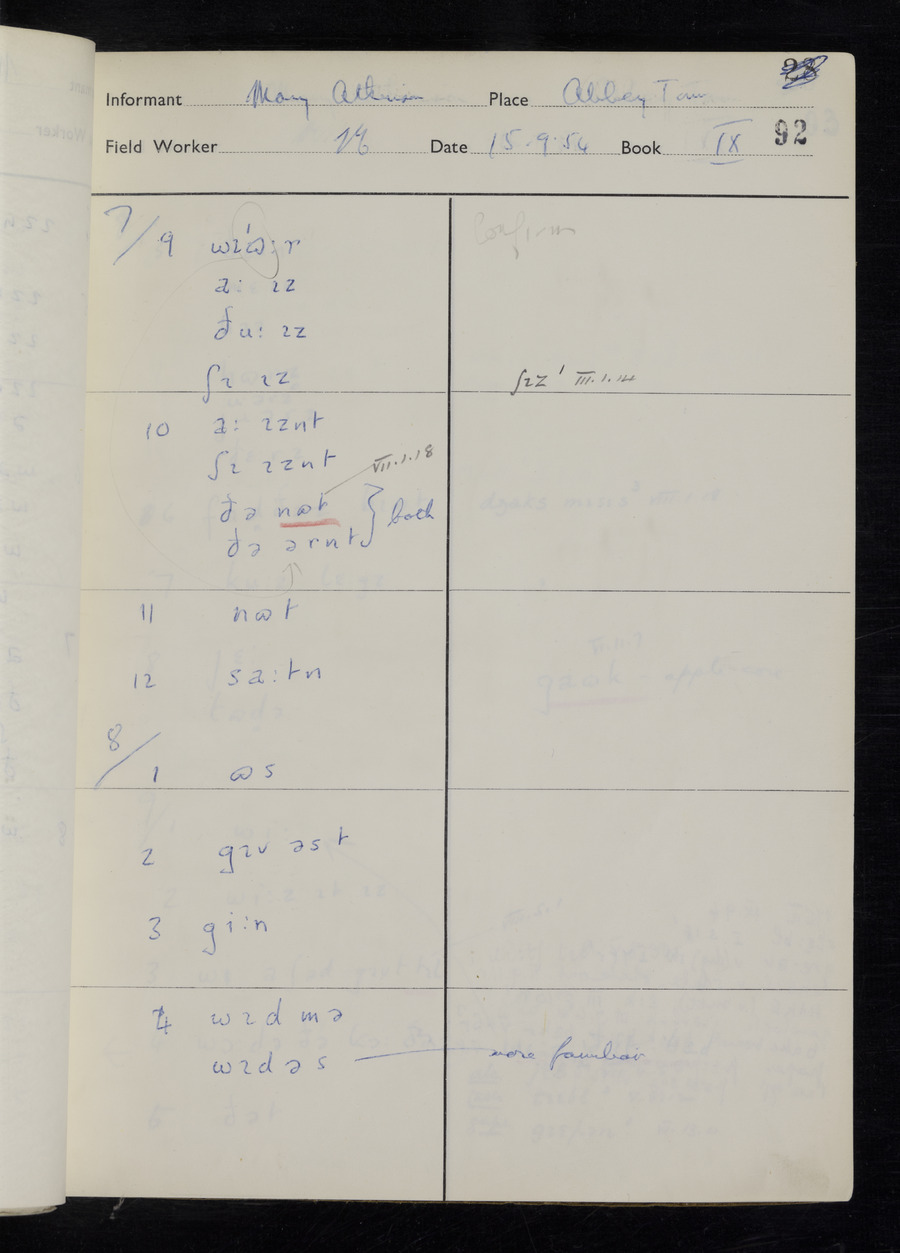 23
Informant Mary Atkinson Place Abbey Town
Field Worker Date 15.9.54 Book IX 92
7/9 Confirm
a: ɪz
ðu: ɪz
ʃɪ ɪz ʃɪz' III.1.14
10 a: ɪznt
ʃɪ ɪznt VII.1.18
ðə nɷt } both
ðə ərnt
11 nɷt
12 sa:tn
8/1 ɷs
2 gɪv əst
3 gi:n
4 wɪd mə
wɪd əs — more familiar